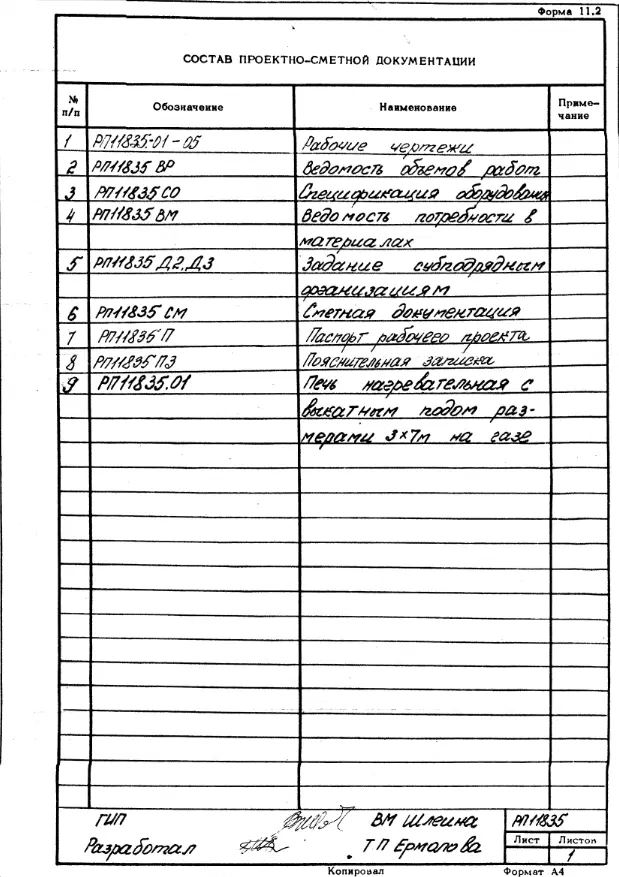 Форма 11.2
СОСТАВ ПРОЕКТНО-СМЕТНОЙ ДОКУМЕНТАЦИИ
№ п/п Обозначение Наименование Приме-
чание
1 РП11835-01-05 Рабочие чертежи
2 РП11835 ВР Ведомость объемов работ
3 РП11835 СО Спецификация оборудования
4 РП11835 ВМ Ведомость потребности в
материалах
5 РП11835 Д2,Д3 Задание субподрядным
организациям
6 РП11835 СМ Сметная документация
7 РП11835 П Паспорт рабочего проекта
8 РП11835 ПЗ Пояснительная записка
9 РП11835.01 Печь нагревательная с
выкатным подом раз-
мерами 3х7м на газе
ГИП ВМ Шлеина РП11835
Разработал ТП Ермолова Лист Листов
1
Копировал Формат А4